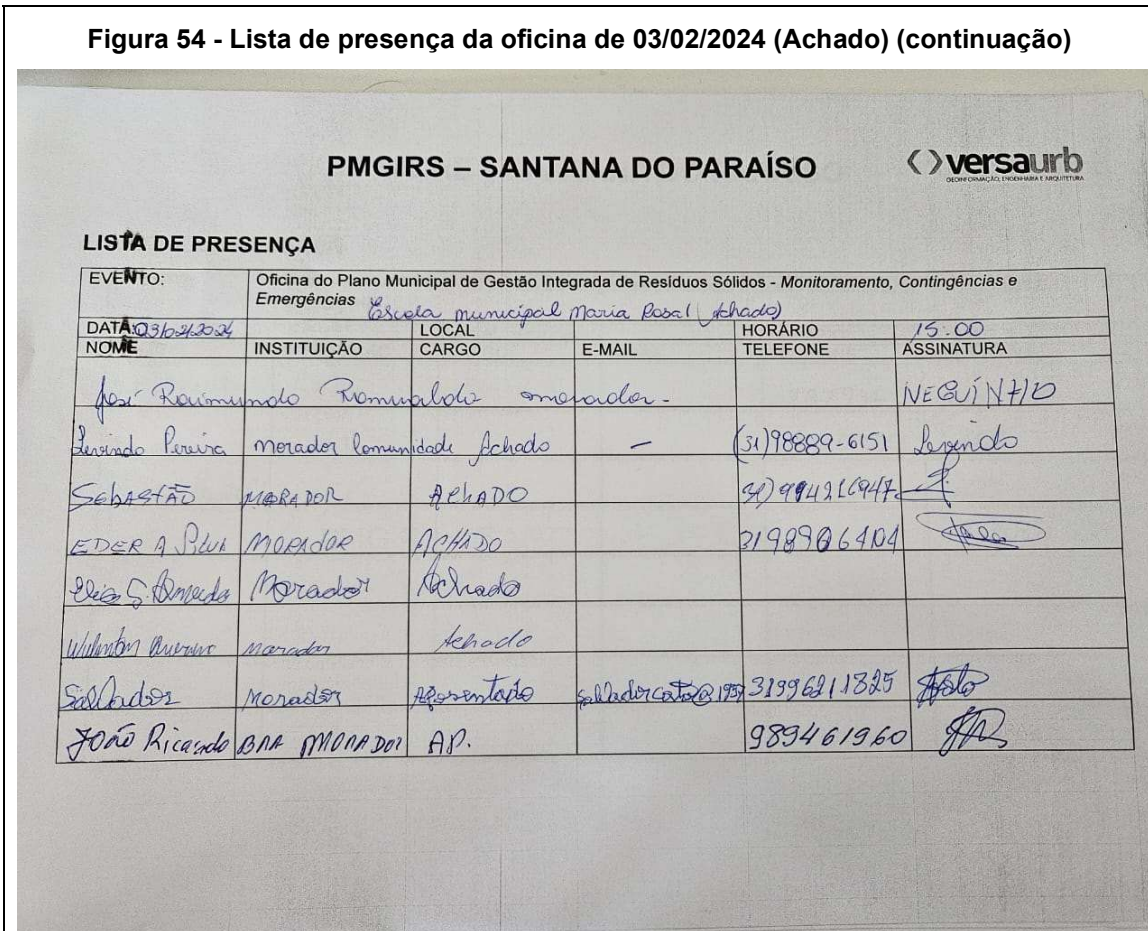 Figura 54 - Lista de presença da oficina de 03/02/2024 (Achado) (continuação)
PMGIRS – SANTANA DO PARAÍSO
versaurb
GEOINFORMAÇÃO, ENGENHARIA E ARQUITETURA
LISTA DE PRESENÇA
EVENTO: Oficina do Plano Municipal de Gestão Integrada de Resíduos Sólidos - Monitoramento, Contingências e
Emergências Escola municipal Maria Rosal (Achado)
DATA: 03/02/2024 LOCAL HORÁRIO 15:00
NOME INSTITUIÇÃO CARGO E-MAIL TELEFONE ASSINATURA
José Raimundo Romualdo morador - NEGUINHO
Levindo Pereira morador Comunidade Achado - (31)98889-6151 Levindo
SEBASTIÃO MORADOR AChADO
EDER A Silva MORADOR ACHADO
Morador Achado
morador Achado
Salvador Morador Aposentado 31996211825
João Ricardo MORADOR AP. 989461960